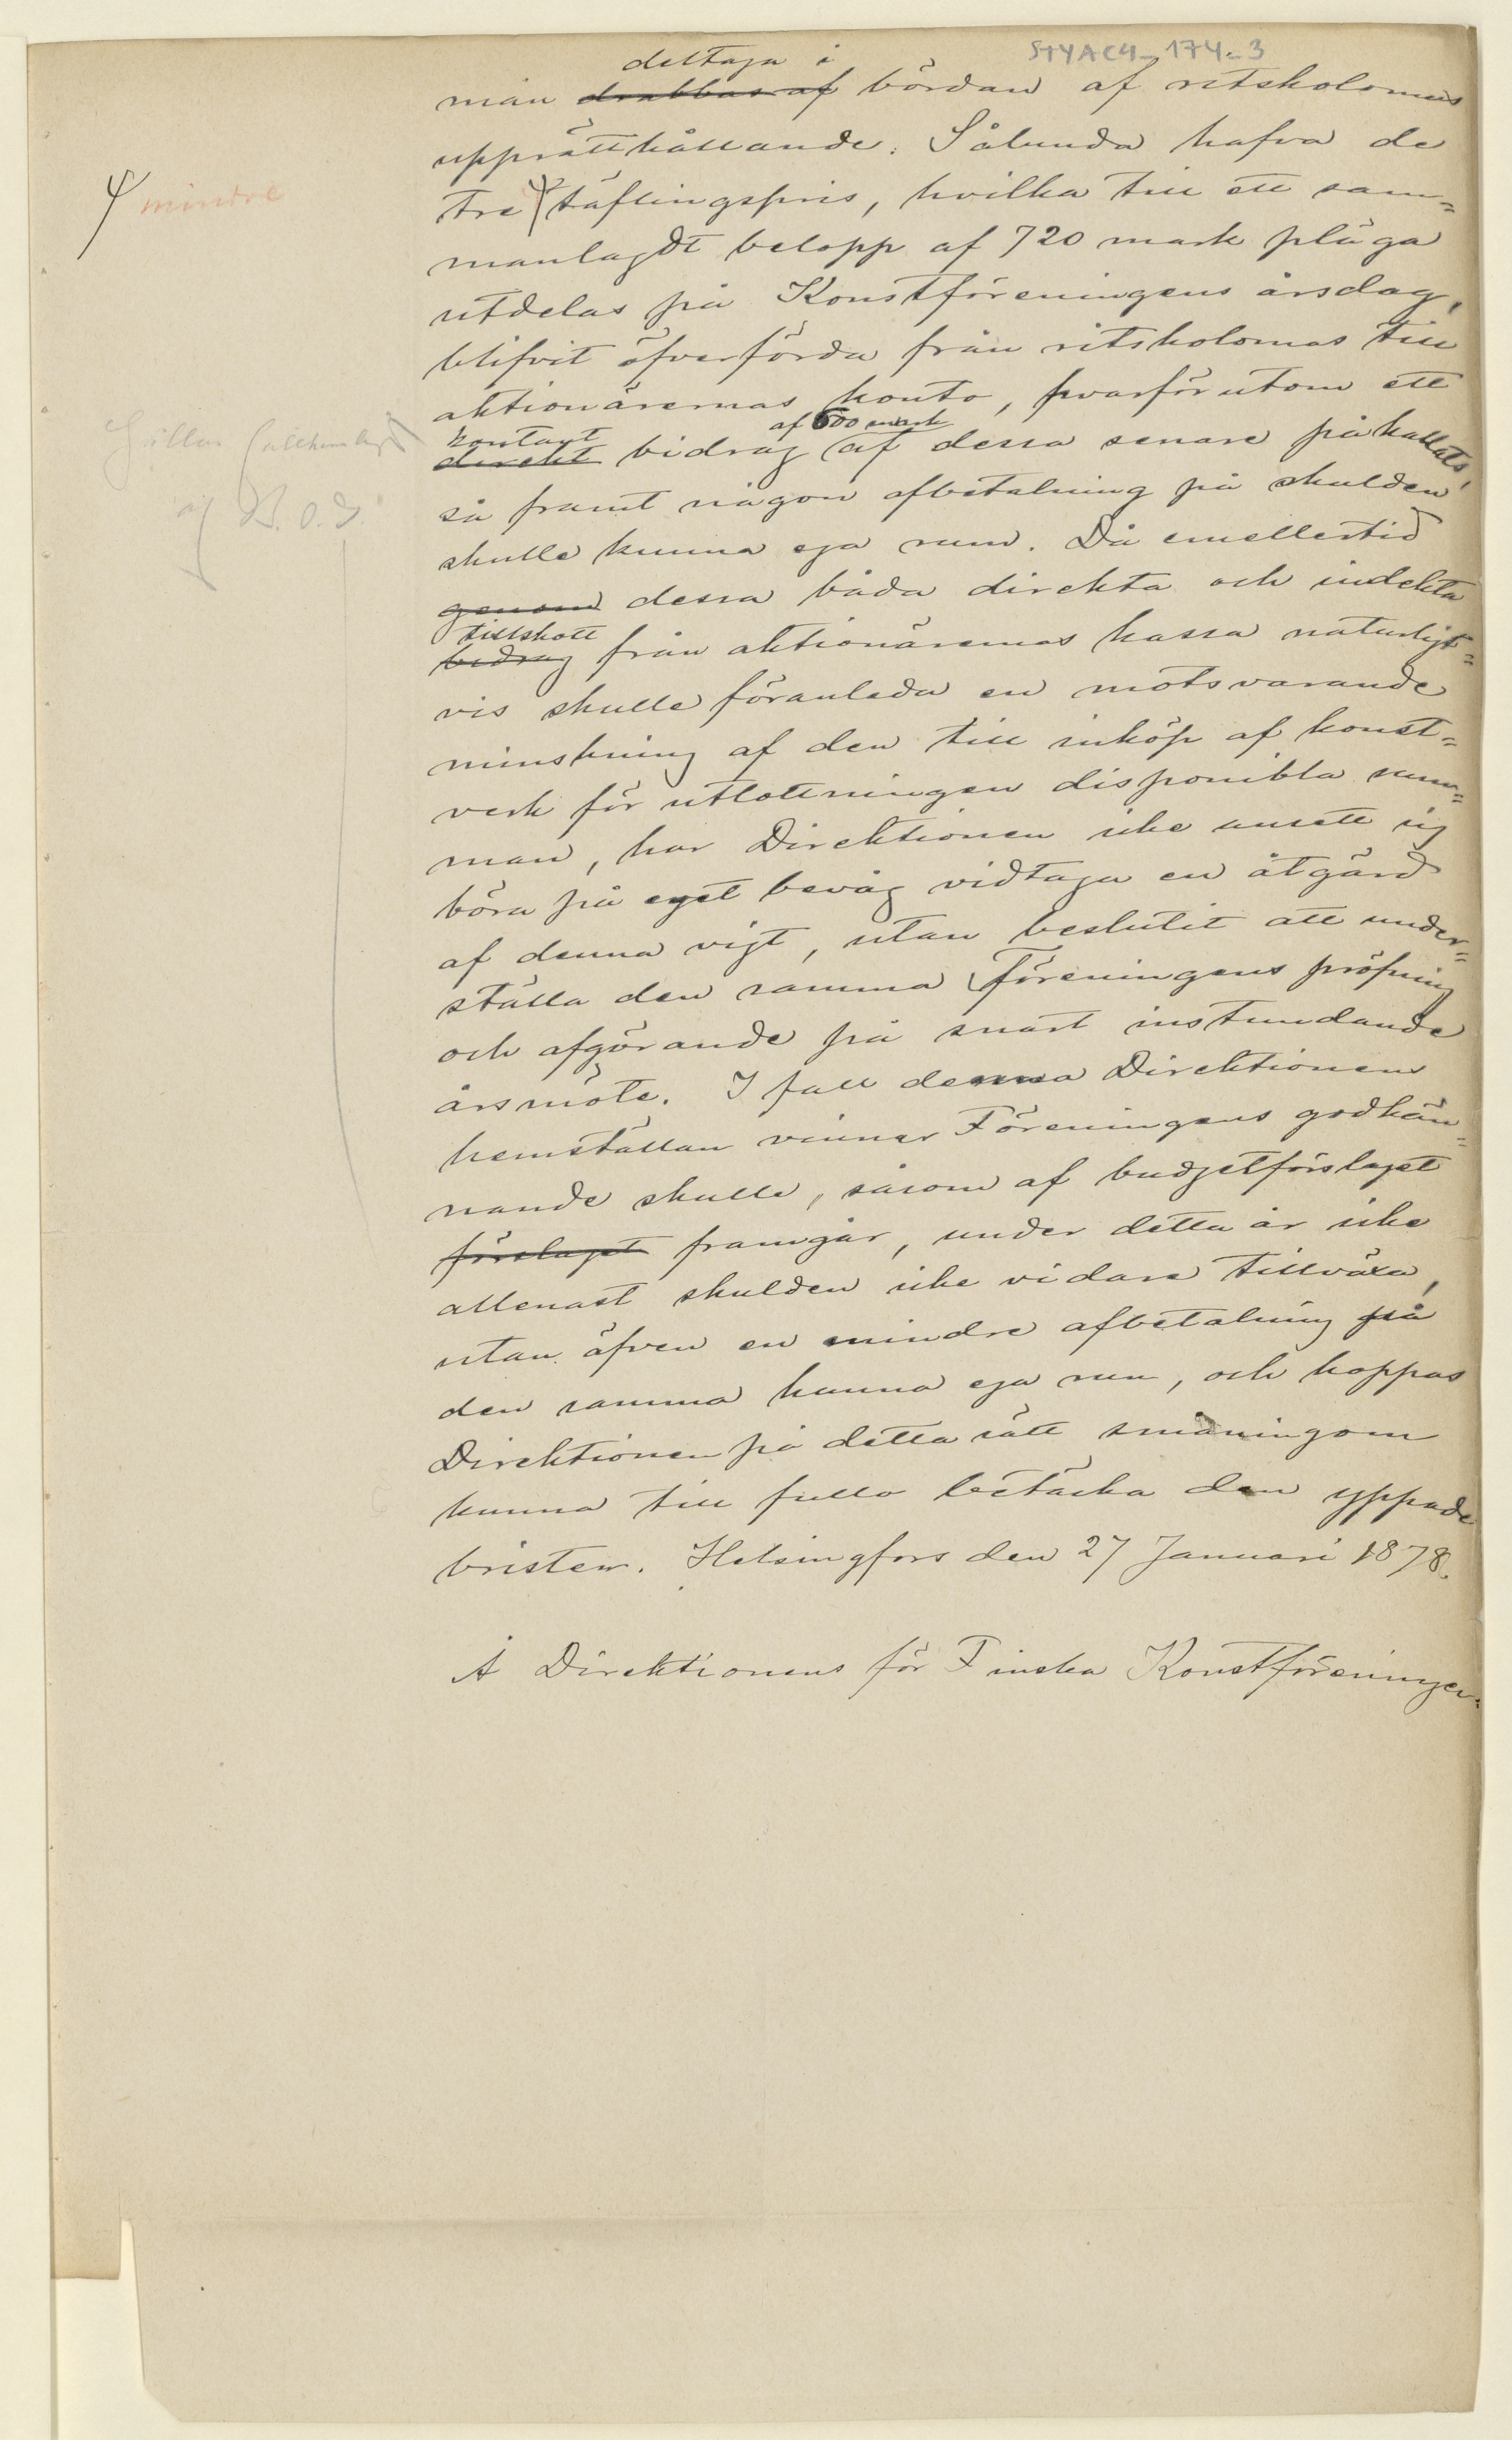 STYAC4_174_3
deltaga i
mån drabbas af bördan af ritskolornas
upprätthållande. Sålunda hafva de
mindre
tre täflingspris, hvilka till ett sam=
manlagdt belopp af 720 mark pläga
utdelas på Konstföreningens årsdag,
blifvit öfverförda från ritskolornas till
aktionärernas konto, hvarförutom ett
kontant af 600 mark
direkt bidrag af dessa senare påkallats,
så framt någon afbetalning på skulden
skulle kunna ega rum. Då emellertid
genom dessa båda direkta och indirekta
tillskott
bidrag från aktionärernas kassa naturligt=
vis skulle föranleda en motsvarande
minskning af den till inköp af konst=
verk för utlottningen disponibla sum=
man, har Direktionen icke ansett sig
böra på eget bevåg vidtaga en åtgärd
af denna vigt, utan beslutit att under=
ställa den samma Föreningens pröfning
och afgörande på snart instundande
årsmöte. I fall denna Direktionens
hemställan vinner Föreningens godkän=
nande skulle, såsom af budjetförslaget
förslaget framgår, under detta år icke
allenast skulden icke vidare tillväxa,
utan äfven en mindre afbetalning på
den samma kunna ega rum, och hoppas
Direktionen på detta sätt småningom
kunna till fullo betäcka den yppade
bristen. Helsingfors den 27 Januari 1878.
Å Direktionens för Finska Konstföreningen